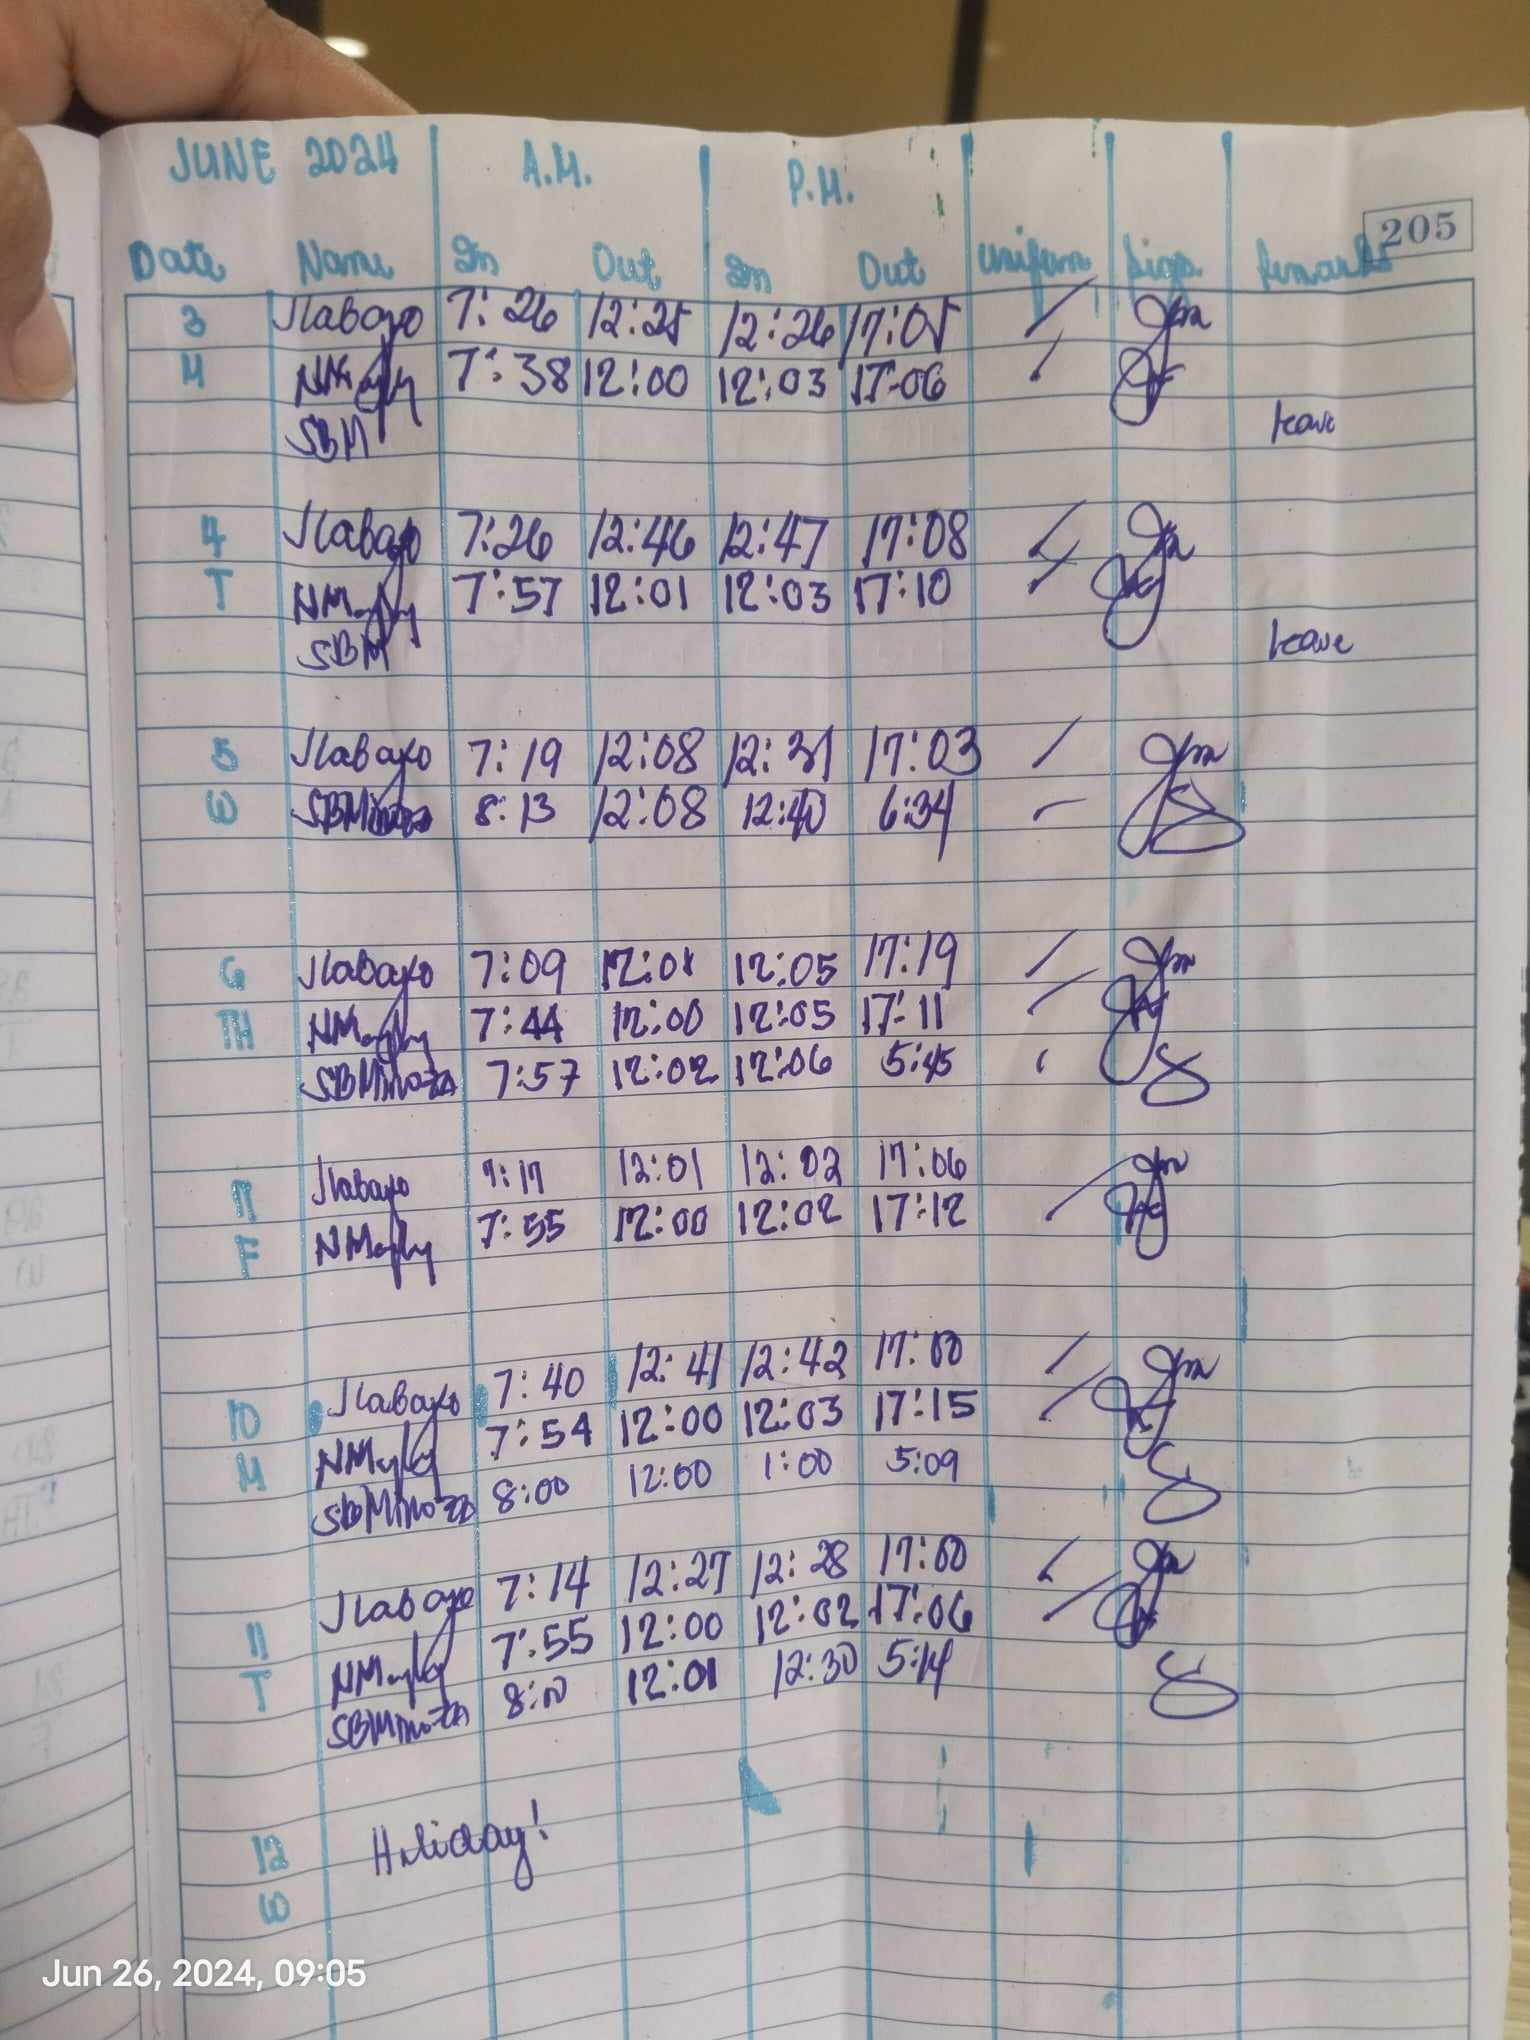 205
JUNE 2024 A.M. P.M.
Date Name In Out In Out Uniform Sign. Remarks
3 Jlabayo 7:26 12:25 12:26 17:05
M 7:38 12:00 12:03 17:06
SBM leave
4 Jlabayo 7:26 12:46 12:47 17:08
T 7:57 12:01 12:03 17:10
SBM leave
5 Jlabayo 7:19 12:08 12:31 17:03
W SBMinoza 8:13 12:08 12:40 6:34
6 Jlabayo 7:09 12:01 12:05 17:19
TH 7:44 12:00 12:05 17:11
SBMinoza 7:57 12:02 12:06 5:45
7 Jlabayo 7:17 12:01 12:02 17:06
F 7:55 12:00 12:02 17:12
10 Jlabayo 7:40 12:41 12:42 17:00
M 7:54 12:00 12:03 17:15
SBMinoza 8:00 12:00 1:00 5:09
11 Jlabayo 7:14 12:27 12:28 17:00
T 7:55 12:00 12:02 17:06
SBMinoza 8:00 12:01 12:30 5:14
12 Holiday!
W
Jun 26, 2024, 09:05